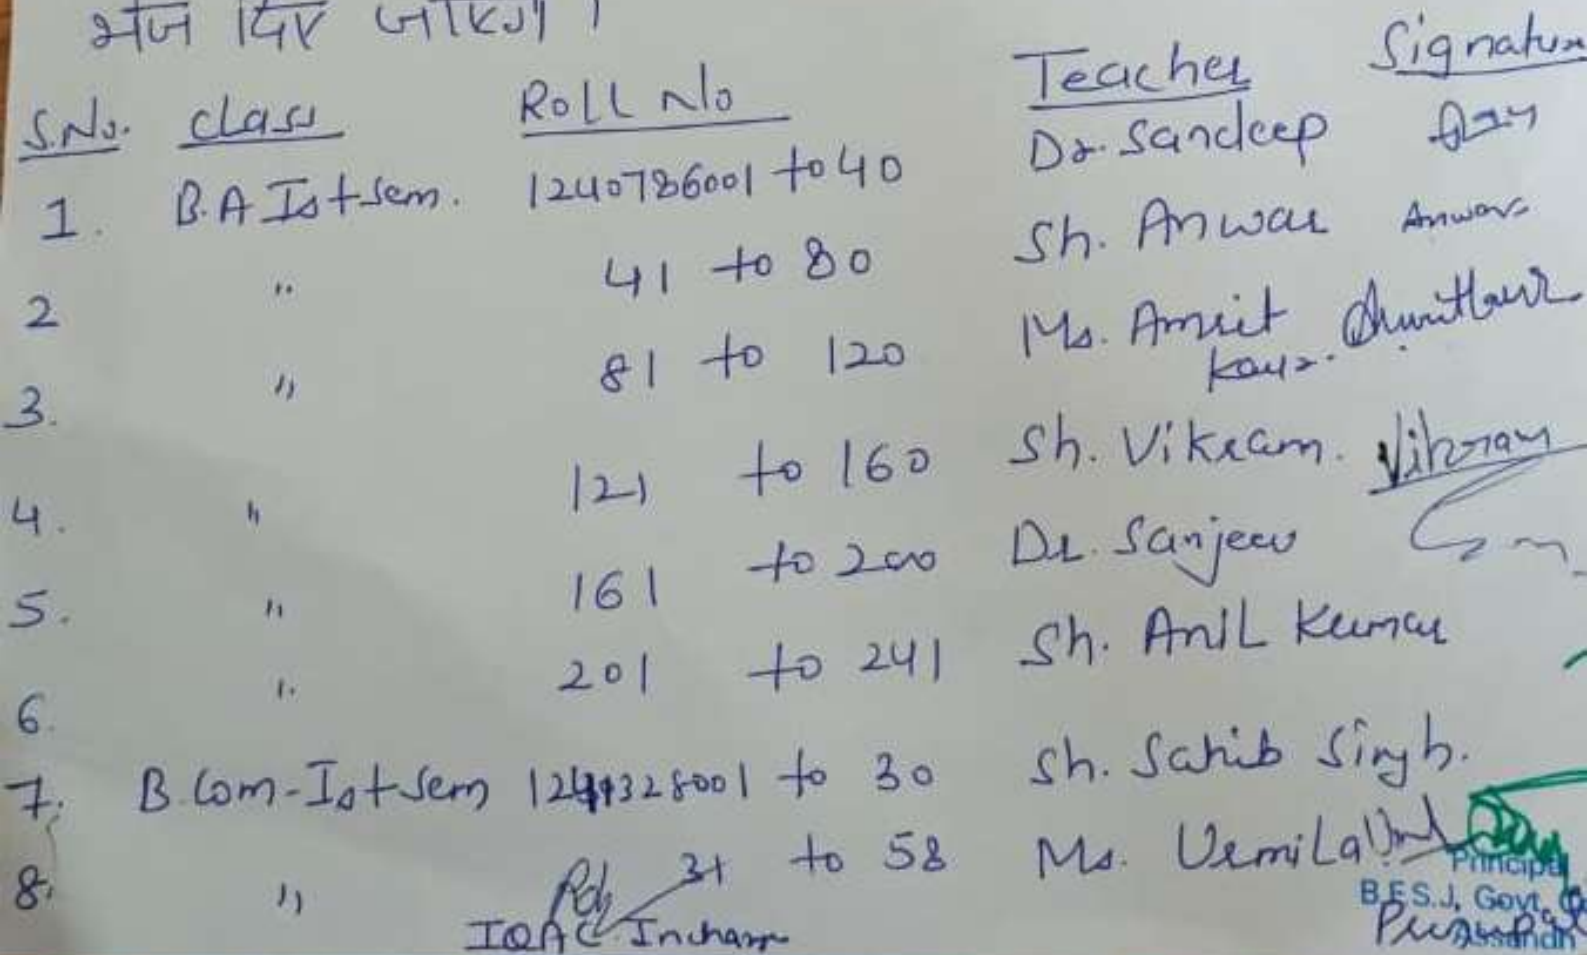 भेज दिए जाएंगे ।
S.No. class Roll No Teacher Signature
1. B.A Ist sem. 1240786001 to 40 Dr. Sandeep
2 " 41 to 80 Sh. Anwar Anwar
3. " 81 to 120 Ms. Amrit Kaur.
4. " 121 to 160 Sh. Vikram. Vikram
5. " 161 to 200 Dr. Sanjeev
6. " 201 to 241 Sh. Anil Kumar
7. B.Com-Ist sem to 30 Sh. Sahib Singh.
8. " 31 to 58 Ms. Urmila
IQAC Incharge
Principal
B.E.S.J. Govt.
Assandh